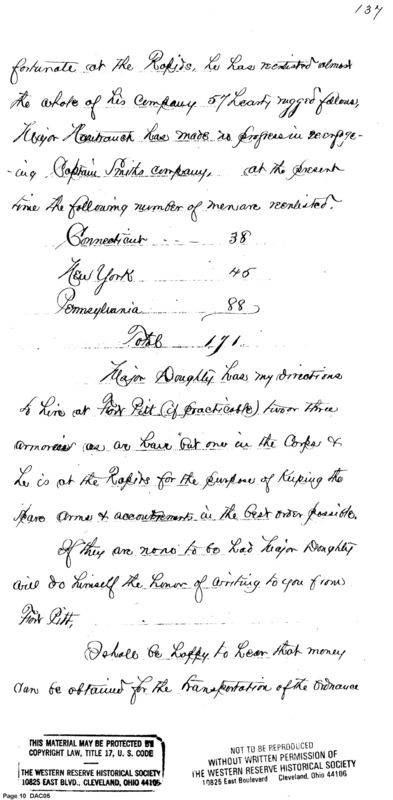 137
fortunate at the Rapids, he has reenlisted almost
the whole of his company 57 hearty rugged fellows,
Major Hamtramck has made no progress in reengage-
-ing Captain Smiths company, at the present
time the following number of men are reenlisted.
Connecticut 38
New York 45
Pennsylvania 88
Total 171.
Major Doughty has my directions
to hire at Fort Pitt (if practicable) two or three
armorers as we have but one in the Corps &
he is at the Rapids for the purpose of keeping the
spare arms & accoutrements in the best order possible.
If they are none to be had Major Doughty
will do himself the honor of writing to you from
Fort Pitt.
I shall be happy to hear that money
can be obtained for the transportation of the Ordnance
THIS MATERIAL MAY BE PROTECTED BY
COPYRIGHT LAW, TITLE 17, U. S. CODE
THE WESTERN RESERVE HISTORICAL SOCIETY
10825 EAST BLVD., CLEVELAND, OHIO 44106
NOT TO BE REPRODUCED
WITHOUT WRITTEN PERMISSION OF
THE WESTERN RESERVE HISTORICAL SOCIETY
10825 East Boulevard Cleveland, Ohio 44106
Page 10 DAC05